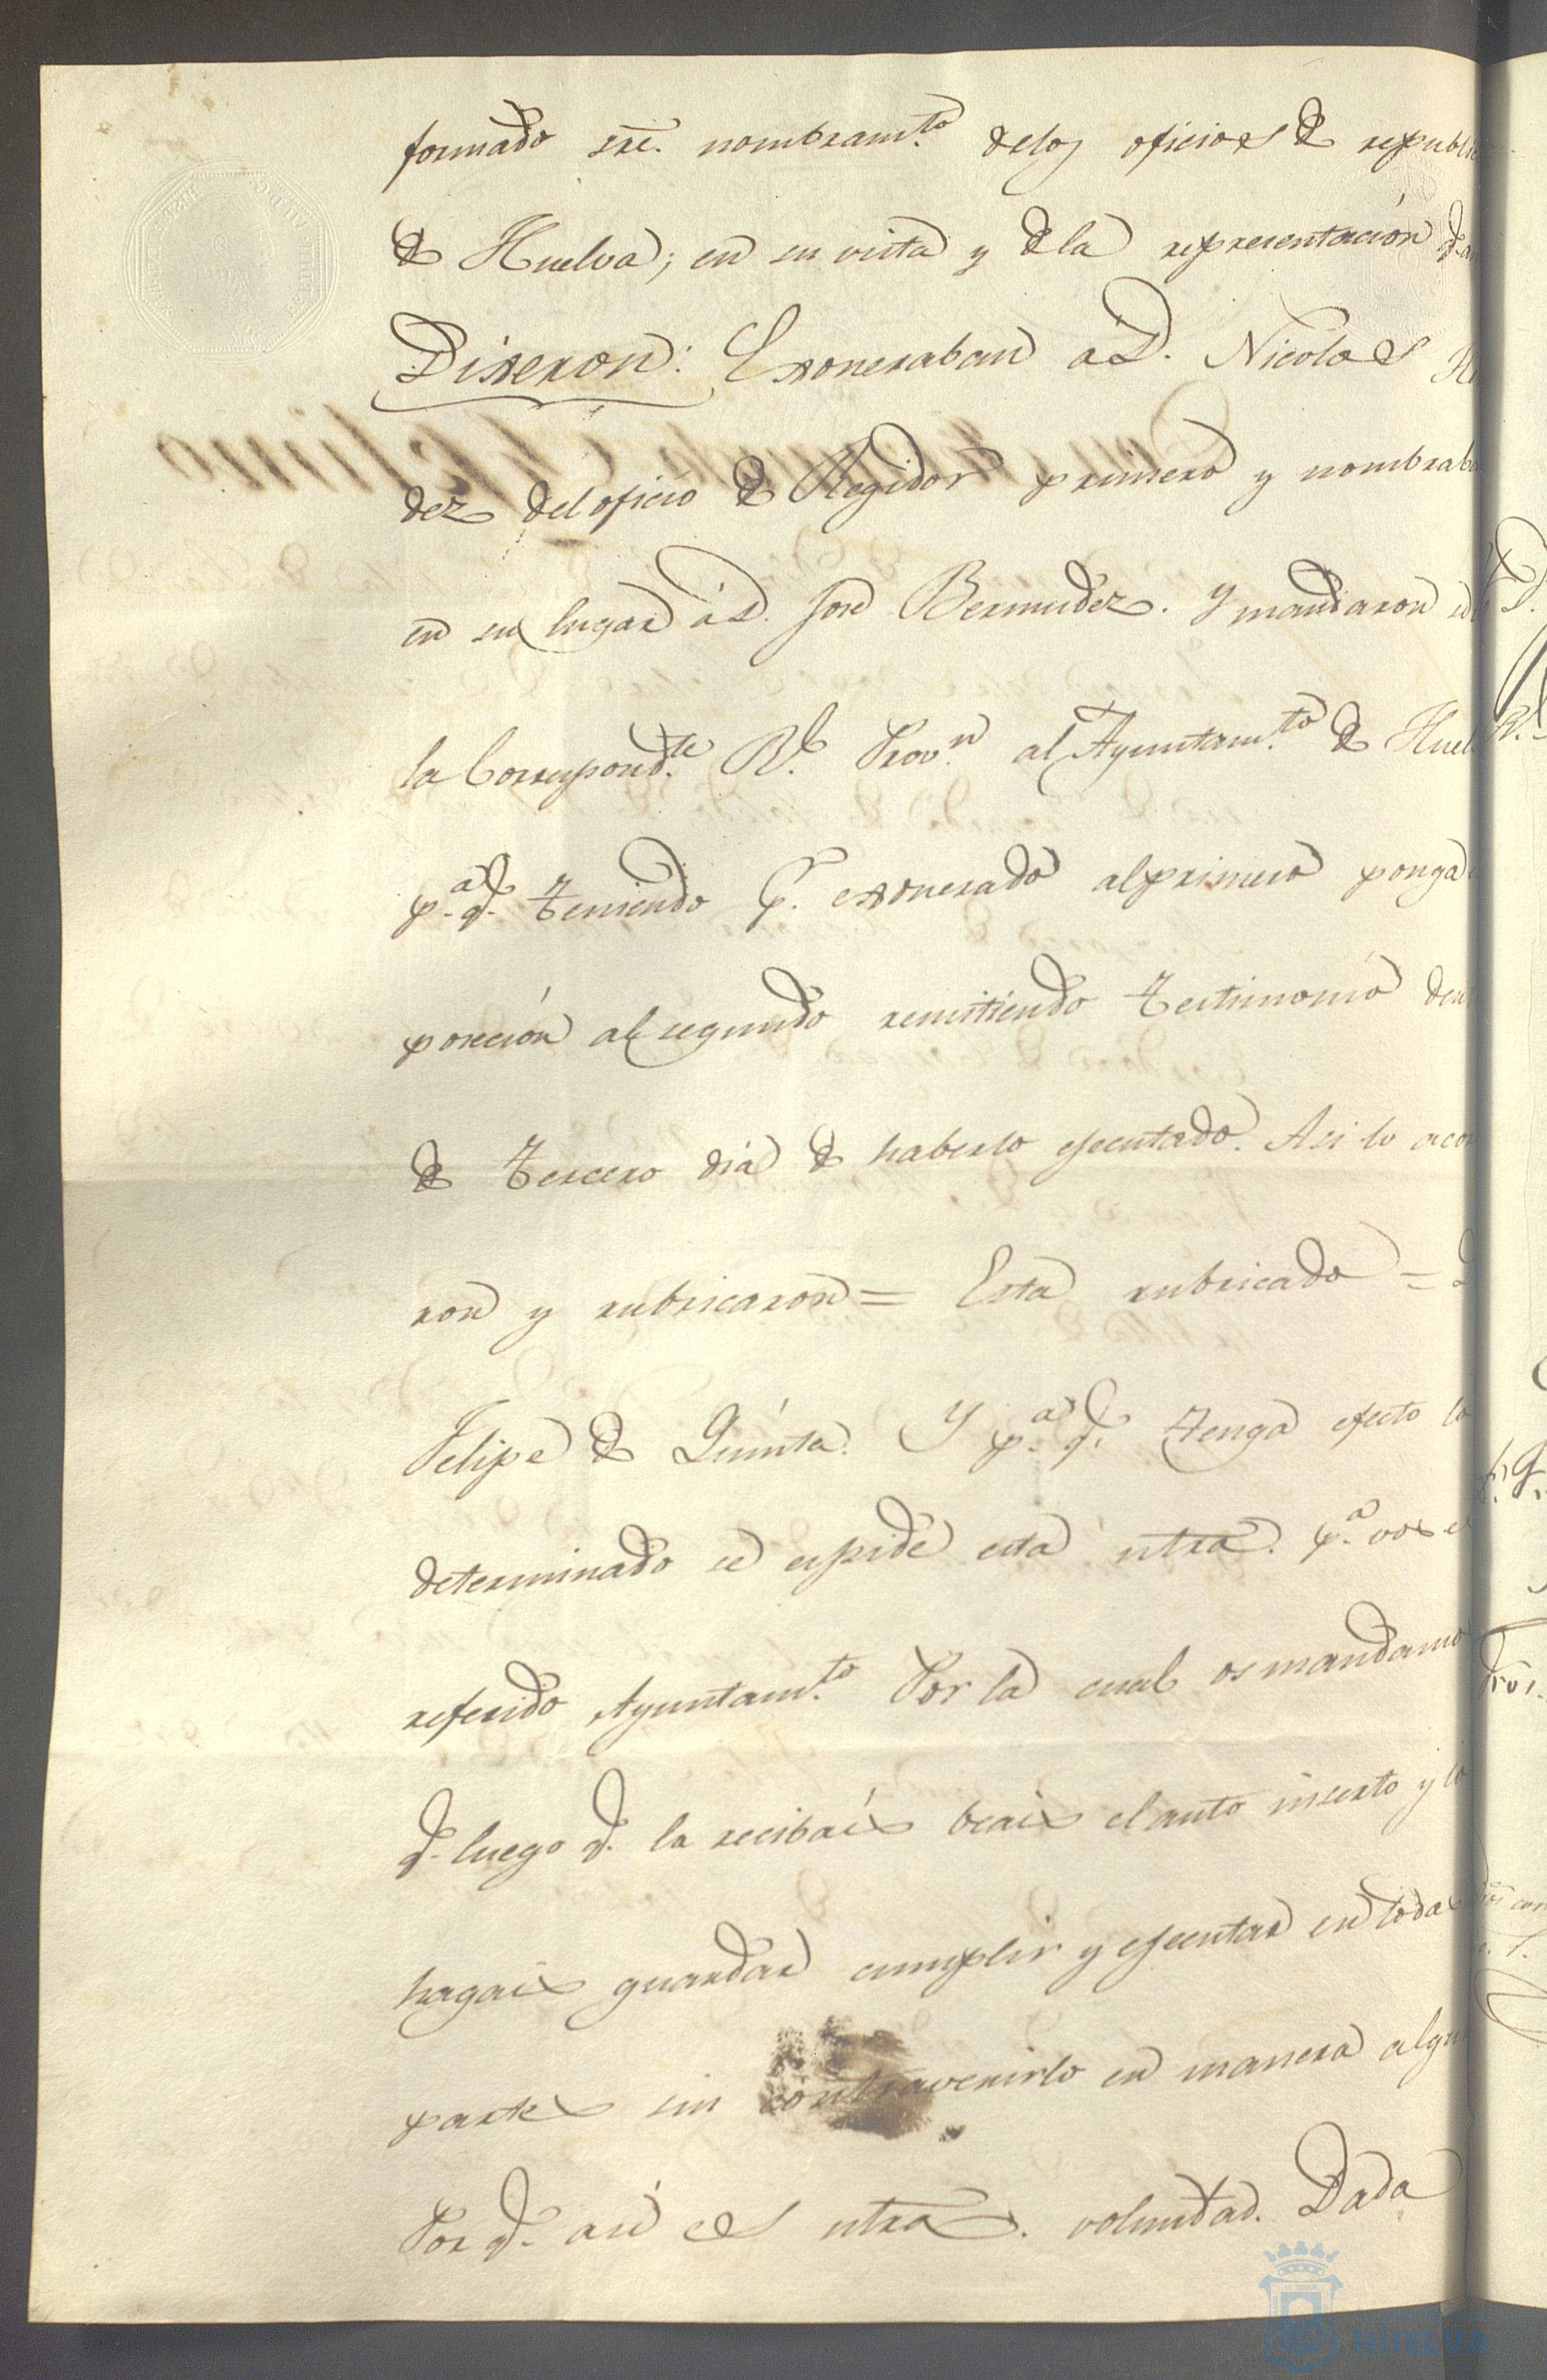 formado sre. nombram.to delos oficios de republi
de Huelva; en su vista y de la representación
Dixeron: Exoneraban a D. Nicolas
dez del oficio de Regidor primero y nombraba
en su lugar á D. José Bermudez. Y mandaron
la Correspond.te R.l Prov.n al Ayuntam.to de Huel
p.a q. teniendo p.r exonerado al primero ponga
poseción al segundo remitiendo testimonio den
de tercero día de haberlo ejecutado. Asi lo acor
ron y rubricaron = Esta rubricado =
Felipe de Quinta. Y p.a q. tenga efecto lo
determinado se espide esta ntra. p.a vos el
referido Ayuntam.to Por la cual os mandamo
q. luego q. la recibais beais el auto inserto y lo
hagais guardar cumplir y ejecutar en todas
partes sin contravenirlo en manera algu
Por q. asi es ntra. voluntad. Dada
HUELVA